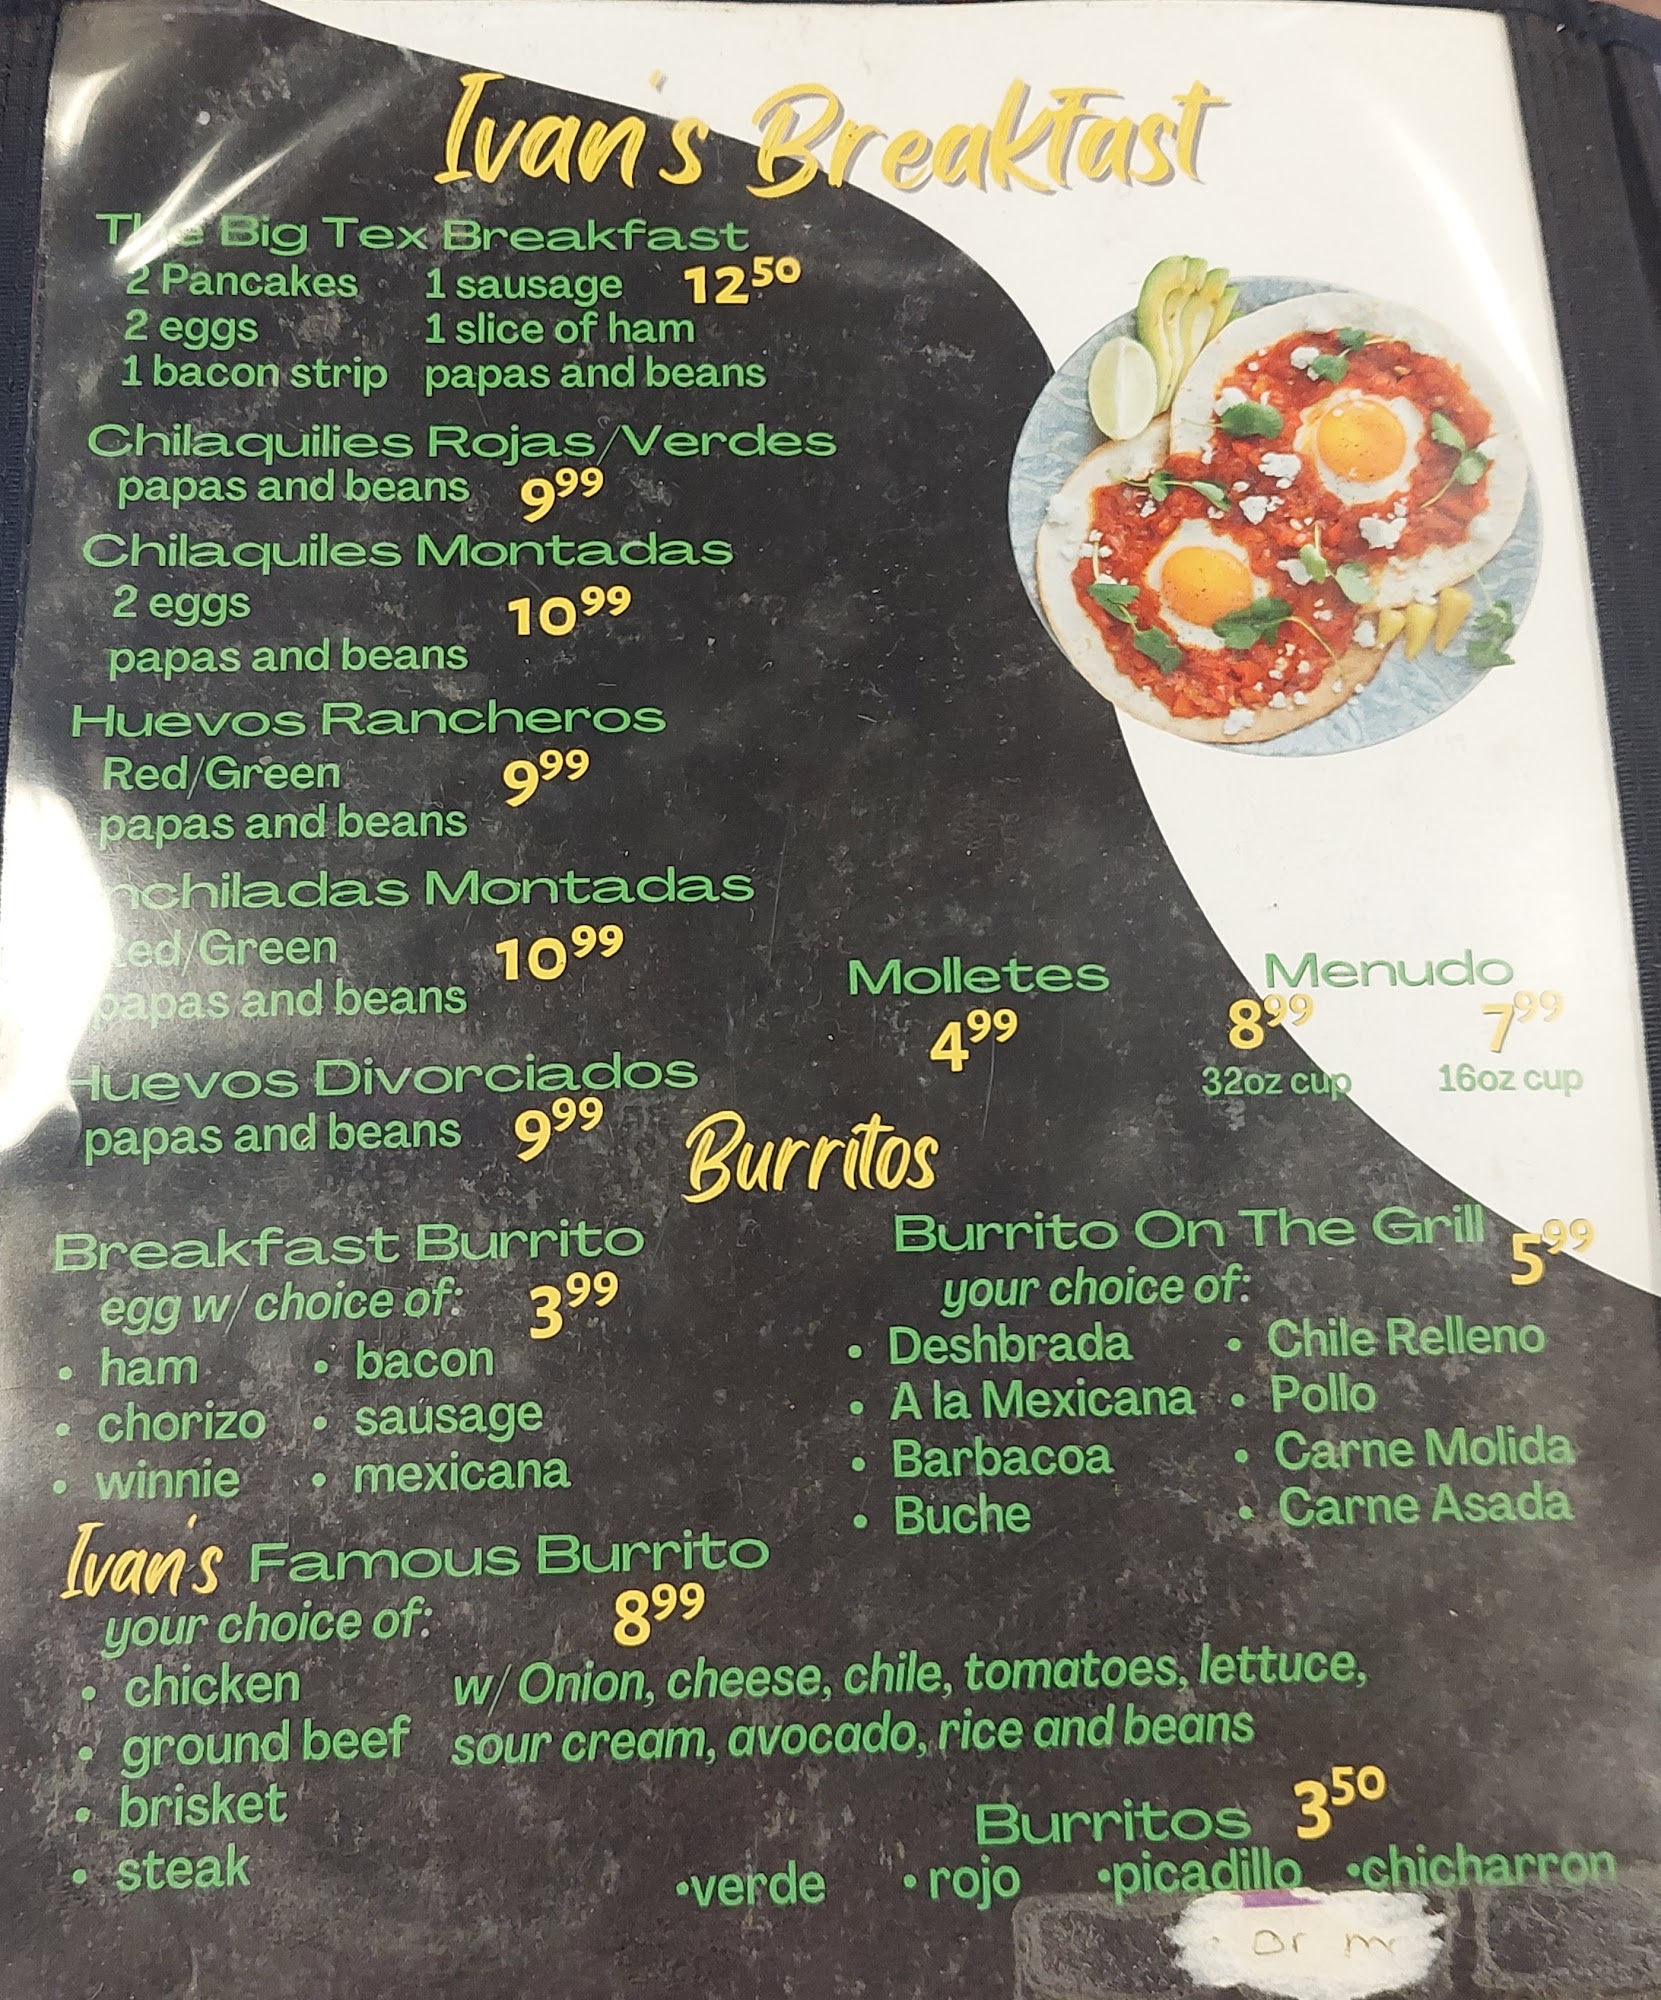 Ivan's Breakfast
The Big Tex Breakfast
2 Pancakes 1 sausage 12.50
2 eggs 1 slice of ham
1 bacon strip papas and beans
Chilaquilies Rojas/Verdes
papas and beans 9.99
Chilaquiles Montadas
2 eggs 10.99
papas and beans
Huevos Rancheros
Red/Green 9.99
papas and beans
Enchiladas Montadas
Red/Green 10.99
papas and beans
Huevos Divorciados
papas and beans 9.99
Molletes
4.99
Menudo
8.99 7.99
32oz cup 16oz cup
Burritos
Breakfast Burrito
egg w/ choice of: 3.99
• ham • bacon
• chorizo • sausage
• winnie • mexicana
Burrito On The Grill 5.99
your choice of:
• Deshbrada • Chile Relleno
• A la Mexicana • Pollo
• Barbacoa • Carne Molida
• Buche • Carne Asada
Ivan's Famous Burrito
your choice of: 8.99
• chicken
• ground beef
• brisket
• steak
w/ Onion, cheese, chile, tomatoes, lettuce,
sour cream, avocado, rice and beans
Burritos 3.50
•verde •rojo •picadillo •chicharron